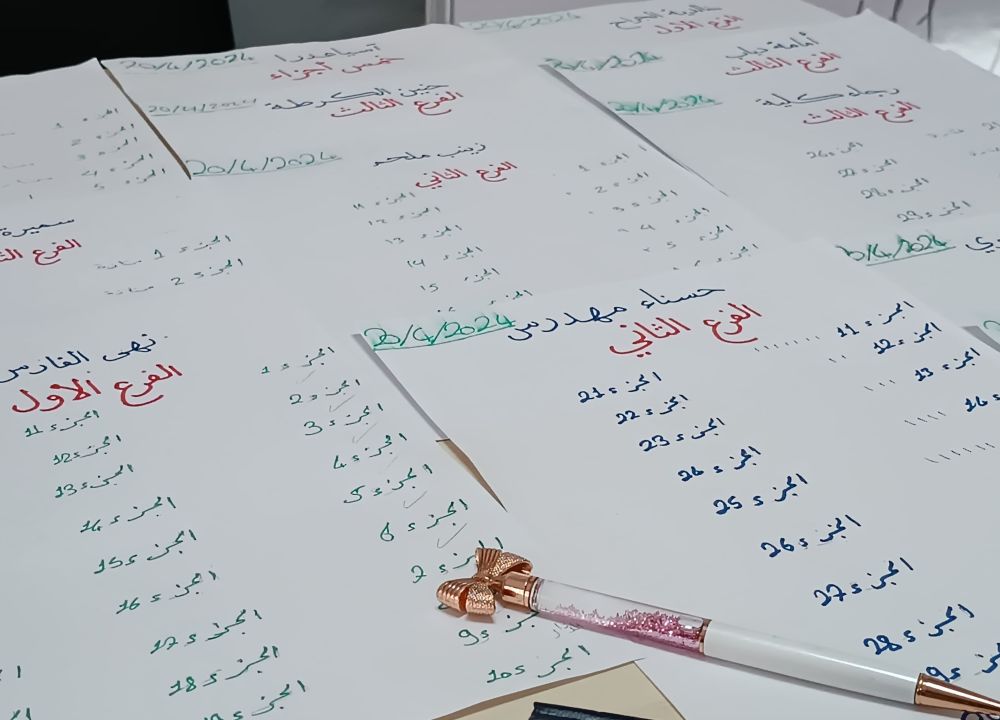 20/4/2024
خالدية الحراج
الفرع الاول
20/4/2024
آسيا عدرا
خمس أجزاء
20/4/2024
حنين الكرطة
الفرع الثالث
20/4/2024
أمامة دياب
الفرع الثالث
20/4/2024
رجاء كلية
الفرع الثالث
الجزء 26
الجزء 22
الجزء 28
الجزء 29
20/4/2024
زينب ملحم
الفرع الثاني
الجزء 11
الجزء 12
الجزء 13
الجزء 14
الجزء 15
1
2
3
4
5
الجزء 1
الجزء 2
الجزء 3
الجزء 4
الجزء 5
سميرة
الجزء 1
الجزء 2
20/4/2024
حسناء مهدرس
الفرع الثاني
الجزء 11
الجزء 12
الجزء 13
14
الجزء 21
الجزء 22
الجزء 23
الجزء 24
الجزء 25
الجزء 26
الجزء 27
الجزء 28
نهى القادس
الفرع الاول
الجزء 1
الجزء 2
الجزء 3
الجزء 4
الجزء 5
الجزء 6
7
9
الجزء 10
الجزء 11
الجزء 12
الجزء 13
الجزء 14
الجزء 15
الجزء 16
الجزء 17
الجزء 18
الجزء 19
20/4/2024